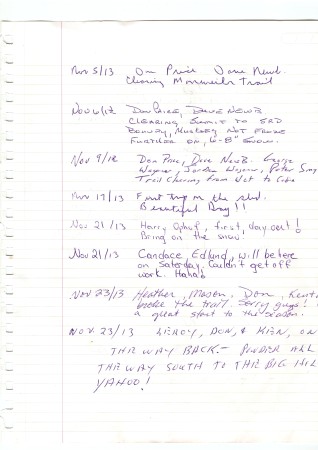 Nov 5/13 Don Price Dave Newb.
Clearing Trail
Nov 6/13 Don Price, Dave NewB
Clearing Summit to 3RD
, Muskeg not froze
Further on, 6-8" snow.
Nov 9/13 Don Price, Dave NewB. George
Wagner, Jordan Wagner, Peter
Trail Clearing from to
Nov 17/13 First Trip on the sled.
Beautiful Day!!
Nov 21/13 Harry , first day out!
Bring on the snow!
Nov 21/13 Candace Edlund, will be here
on Saturday. Couldn't get off
work. Haha!
Nov 23/13 Heather, Mason, Don,
broke the trail. Sorry guys!
a great start to the season.
Nov 23/13 LEROY, DON, & KEN, ON
THE WAY BACK - POWDER ALL
THE WAY SOUTH TO THE BIG HILL
YAHOO!